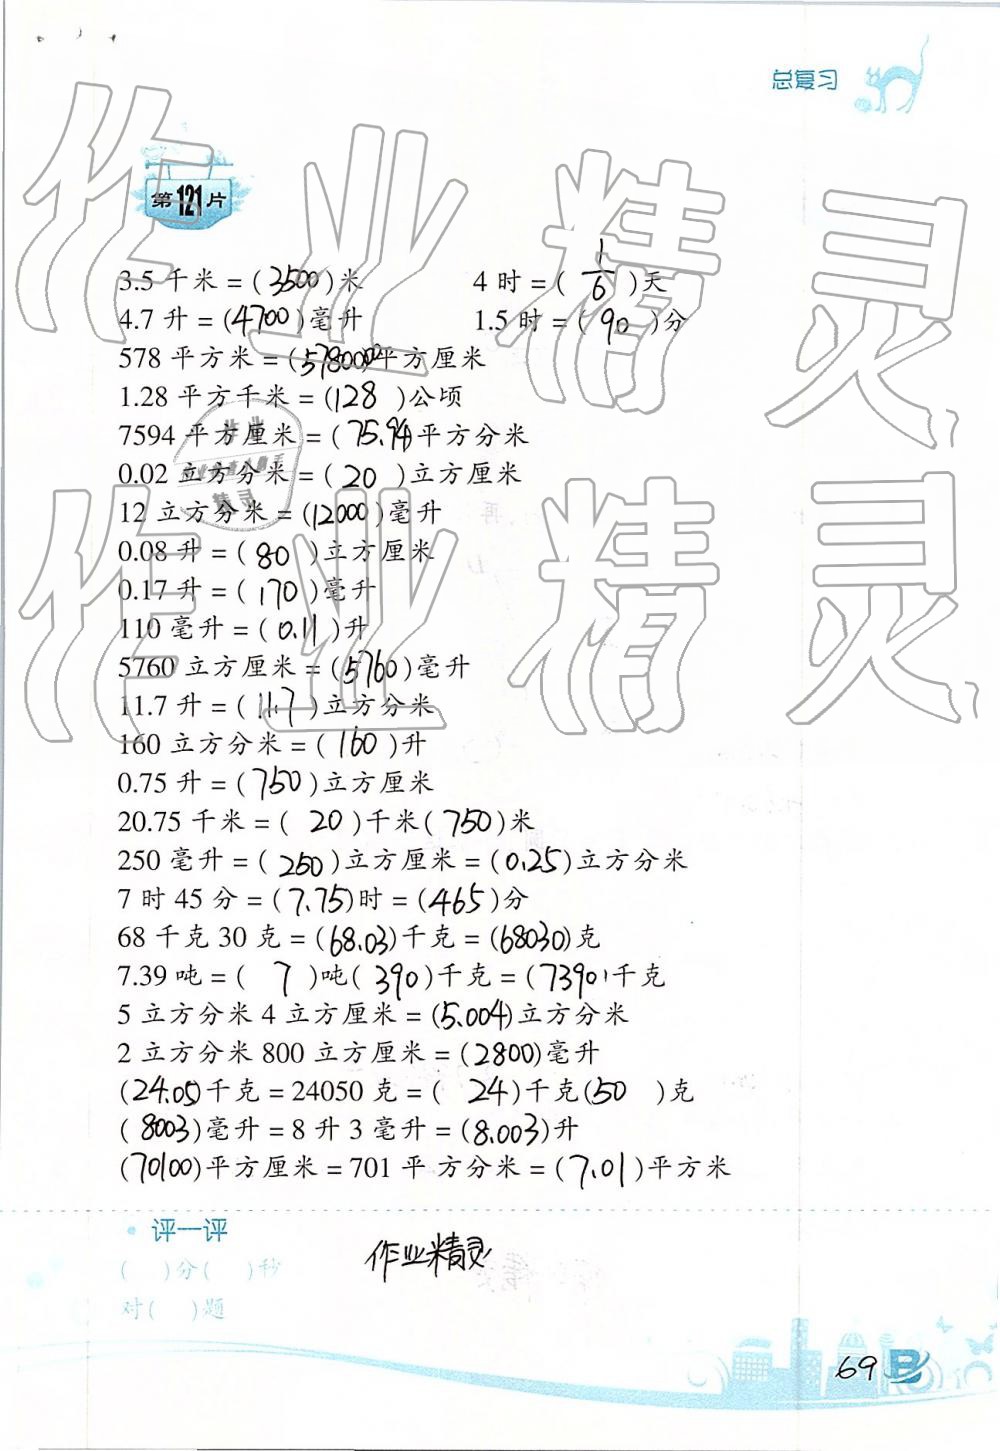 总复习
第121片
3.5千米=(3500)米 4时=(1/6)天
4.7升=(4700)毫升 1.5时=(90)分
578平方米=(5780000)平方厘米
1.28平方千米=(128)公顷
7594平方厘米=(75.94)平方分米
0.02立方分米=(20)立方厘米
12立方分米=(12000)毫升
0.08升=(80)立方厘米
0.17升=(170)毫升
110毫升=(0.11)升
5760立方厘米=(5760)毫升
11.7升=(11.7)立方分米
160立方分米=(160)升
0.75升=(750)立方厘米
20.75千米=(20)千米(750)米
250毫升=(250)立方厘米=(0.25)立方分米
7时45分=(7.75)时=(465)分
68千克30克=(68.03)千克=(68030)克
7.39吨=(7)吨(390)千克=(7390)千克
5立方分米4立方厘米=(5.004)立方分米
2立方分米800立方厘米=(2800)毫升
(24.05)千克=24050克=(24)千克(50)克
(8003)毫升=8升3毫升=(8.003)升
(70100)平方厘米=701平方分米=(7.01)平方米
评一评
( )分( )秒
对( )题
作业精灵
69 B
作业精灵
作业精灵